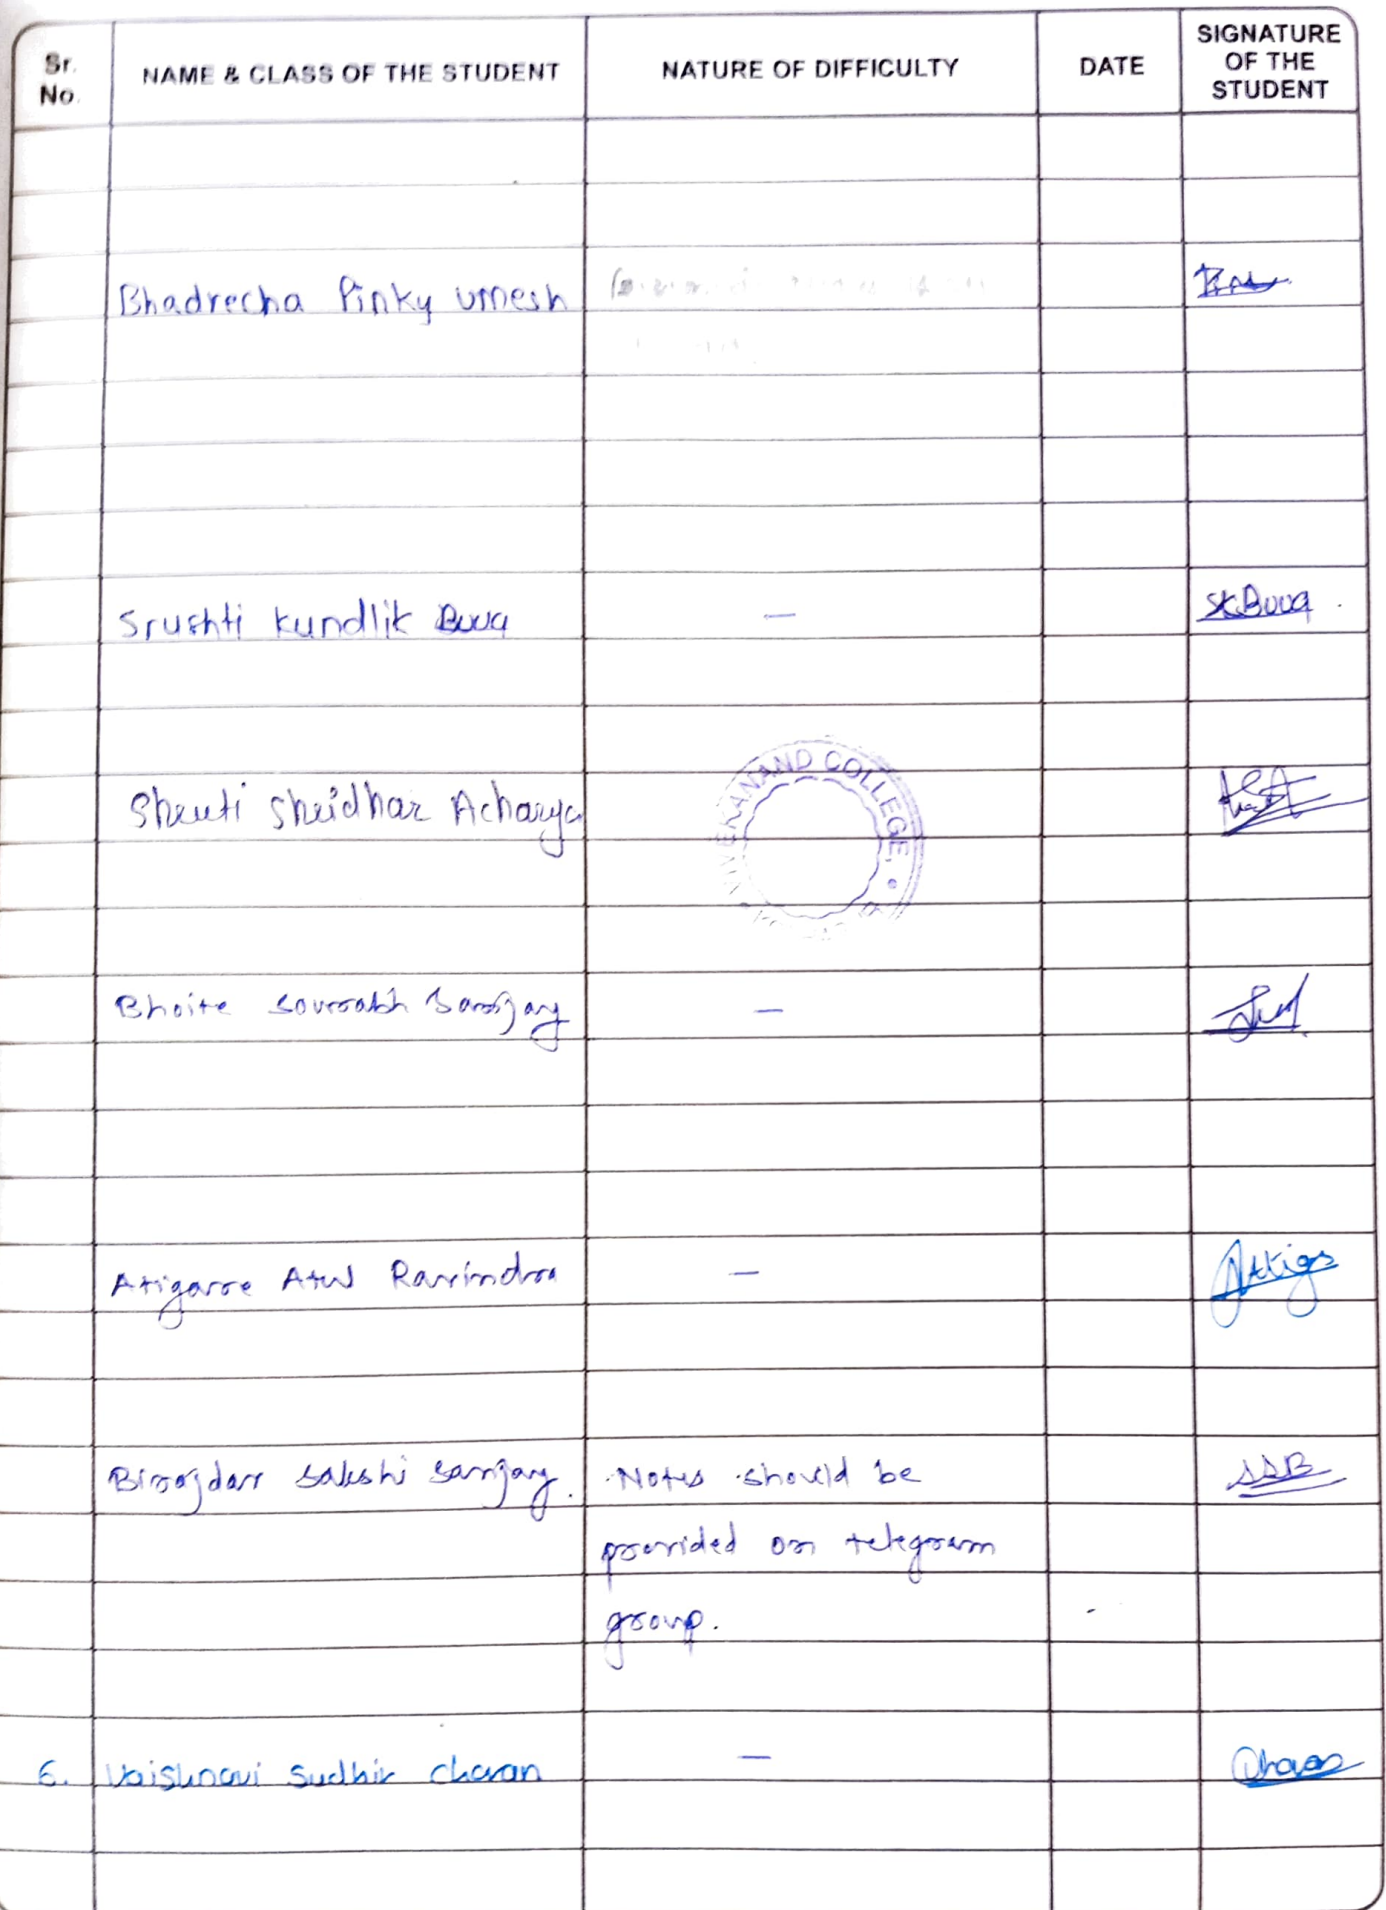 Sr. No.
NAME & CLASS OF THE STUDENT
NATURE OF DIFFICULTY
DATE
SIGNATURE OF THE STUDENT
Bhadrecha Pinky Umesh
Srushti Kundlik Buva — SKBuva
VIVEKANAND COLLEGE,
Shruti Shridhar Acharya
Bhoite Sourabh Sanjay —
Atigare Atul Ravindra — Atigre
Birajdar Sakshi Sanjay. Notes should be SSB
provided on telegram
group.
6. Vaishnavi Sudhir Chavan — Chavan